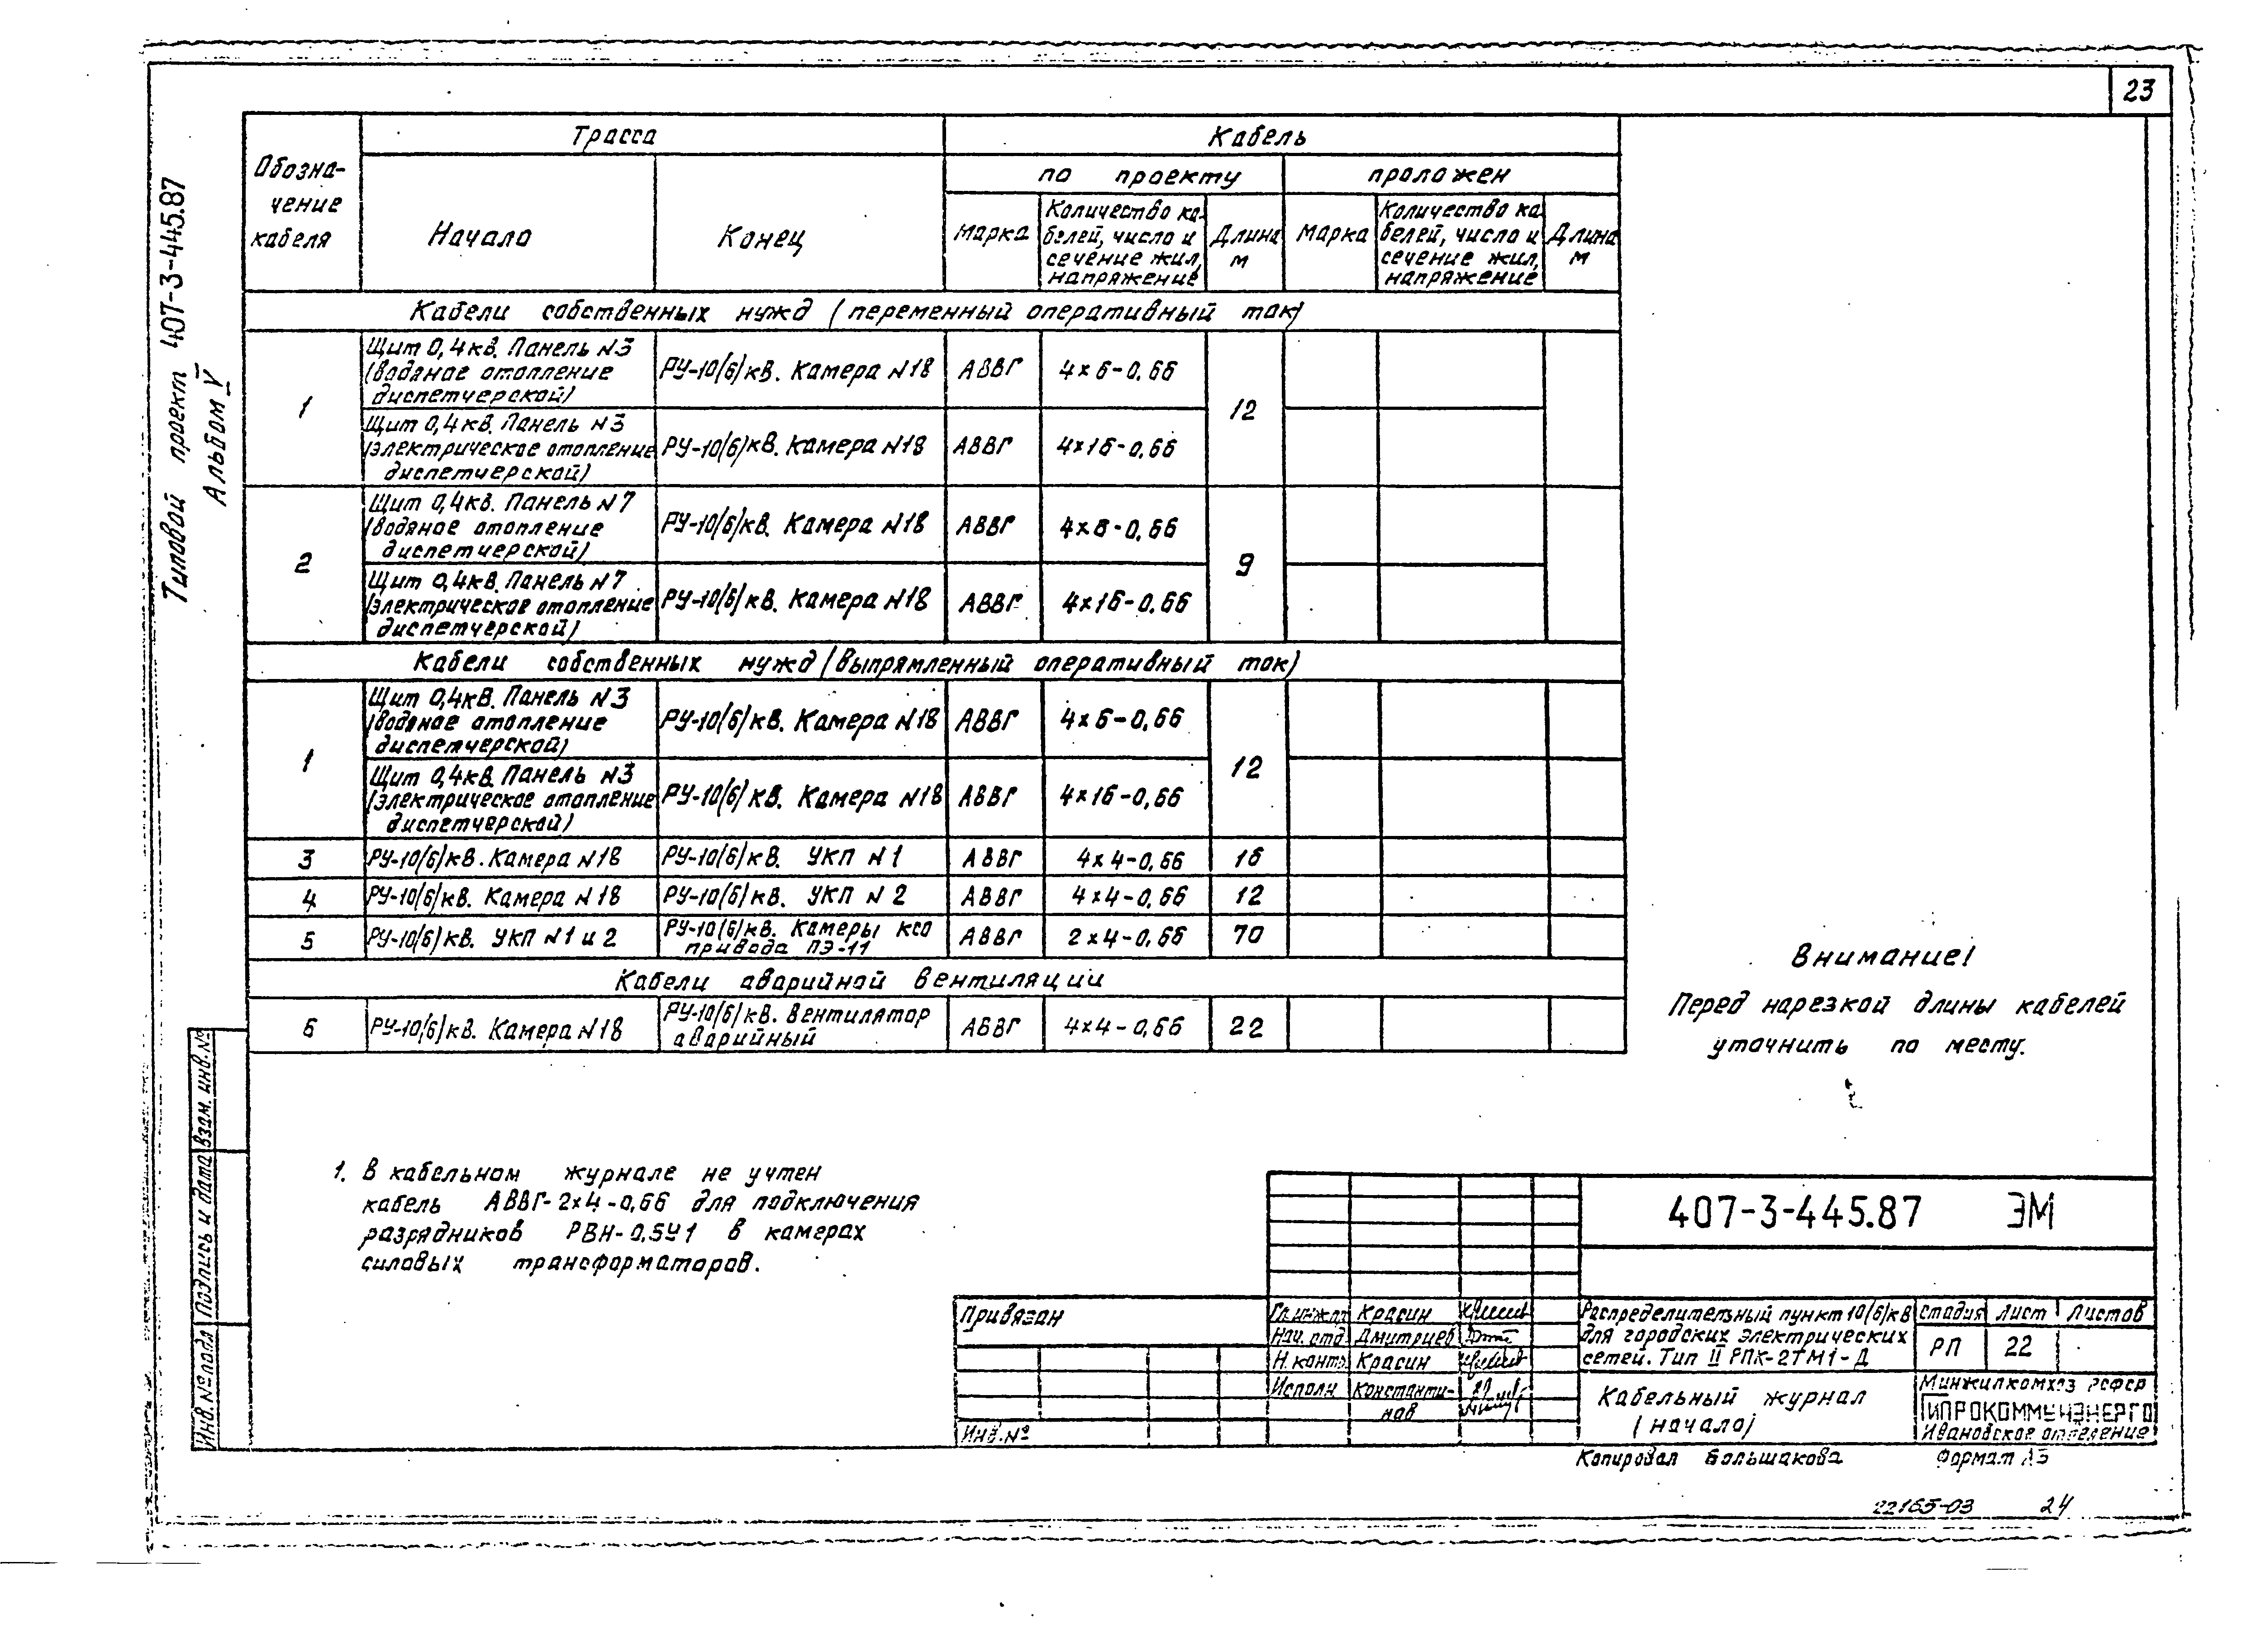 23
Типовой проект 407-3-445.87
Альбом V
Обозна-
чение
кабеля
Трасса
Кабель
по проекту
проложен
Начало
Конец
Марка
Количество ка-
белей, число и
сечение жил,
напряжение
Длина
м
Марка
Количество ка
белей, число и
сечение жил,
напряжение
Длина
м
Кабели собственных нужд (переменный оперативный ток)
1
Щит 0,4кв. Панель N3
(водяное отопление
диспетчерской)
РУ-10(6)кв. Камера N18
АВВГ
4×6-0,66
12
Щит 0,4кв. Панель N3
(электрическое отопление
диспетчерской)
РУ-10(6)кв. Камера N18
АВВГ
4×16-0,66
2
Щит 0,4кв. Панель N7
(водяное отопление
диспетчерской)
РУ-10(6)кв. Камера N18
АВВГ
4×6-0,66
9
Щит 0,4кв. Панель N7
(электрическое отопление
диспетчерской)
РУ-10(6)кв. Камера N18
АВВГ
4×16-0,66
Кабели собственных нужд (выпрямленный оперативный ток)
1
Щит 0,4кв. Панель N3
(водяное отопление
диспетчерской)
РУ-10(6)кв. Камера N18
АВВГ
4×6-0,66
12
Щит 0,4кв. Панель N3
(электрическое отопление
диспетчерской)
РУ-10(6)кв. Камера N18
АВВГ
4×16-0,66
3 РУ-10(6)кв. Камера N18 РУ-10(6)кв. УКП N1 АВВГ 4×4-0,66 16
4 РУ-10(6)кв. Камера N18 РУ-10(6)кв. УКП N2 АВВГ 4×4-0,66 12
5 РУ-10(6)кв. УКП N1 и 2 РУ-10(6)кв. Камеры КСО
привода ПЭ-11
АВВГ 2×4-0,66 70
Кабели аварийной вентиляции
6 РУ-10(6)кв. Камера N18 РУ-10(6)кв. Вентилятор
аварийный
АВВГ 4×4-0,66 22
Внимание!
Перед нарезкой длины кабелей
уточнить по месту.
1. В кабельном журнале не учтен
кабель АВВГ-2×4-0,66 для подключения
разрядников РВН-0,5У1 в камерах
силовых трансформаторов.
Взам. инв. №
Подпись и дата
Инв. № подл
407-3-445.87 ЭМ
Привязан
Инв. №
Гл.инж.пр Красин
Нач. отд. Дмитриев
Н.контр Красин
Исполн Константи-
нов
Распределительный пункт 10(6)кв
для городских электрических
сетей. Тип II РПК-2ТМ1-Д
Стадия Лист Листов
РП 22
Кабельный журнал
(начало)
Минжилкомхоз РСФСР
ГИПРОКОММУНЭНЕРГО
Ивановское отделение
Копировал Большакова
Формат А3
22165-03 24